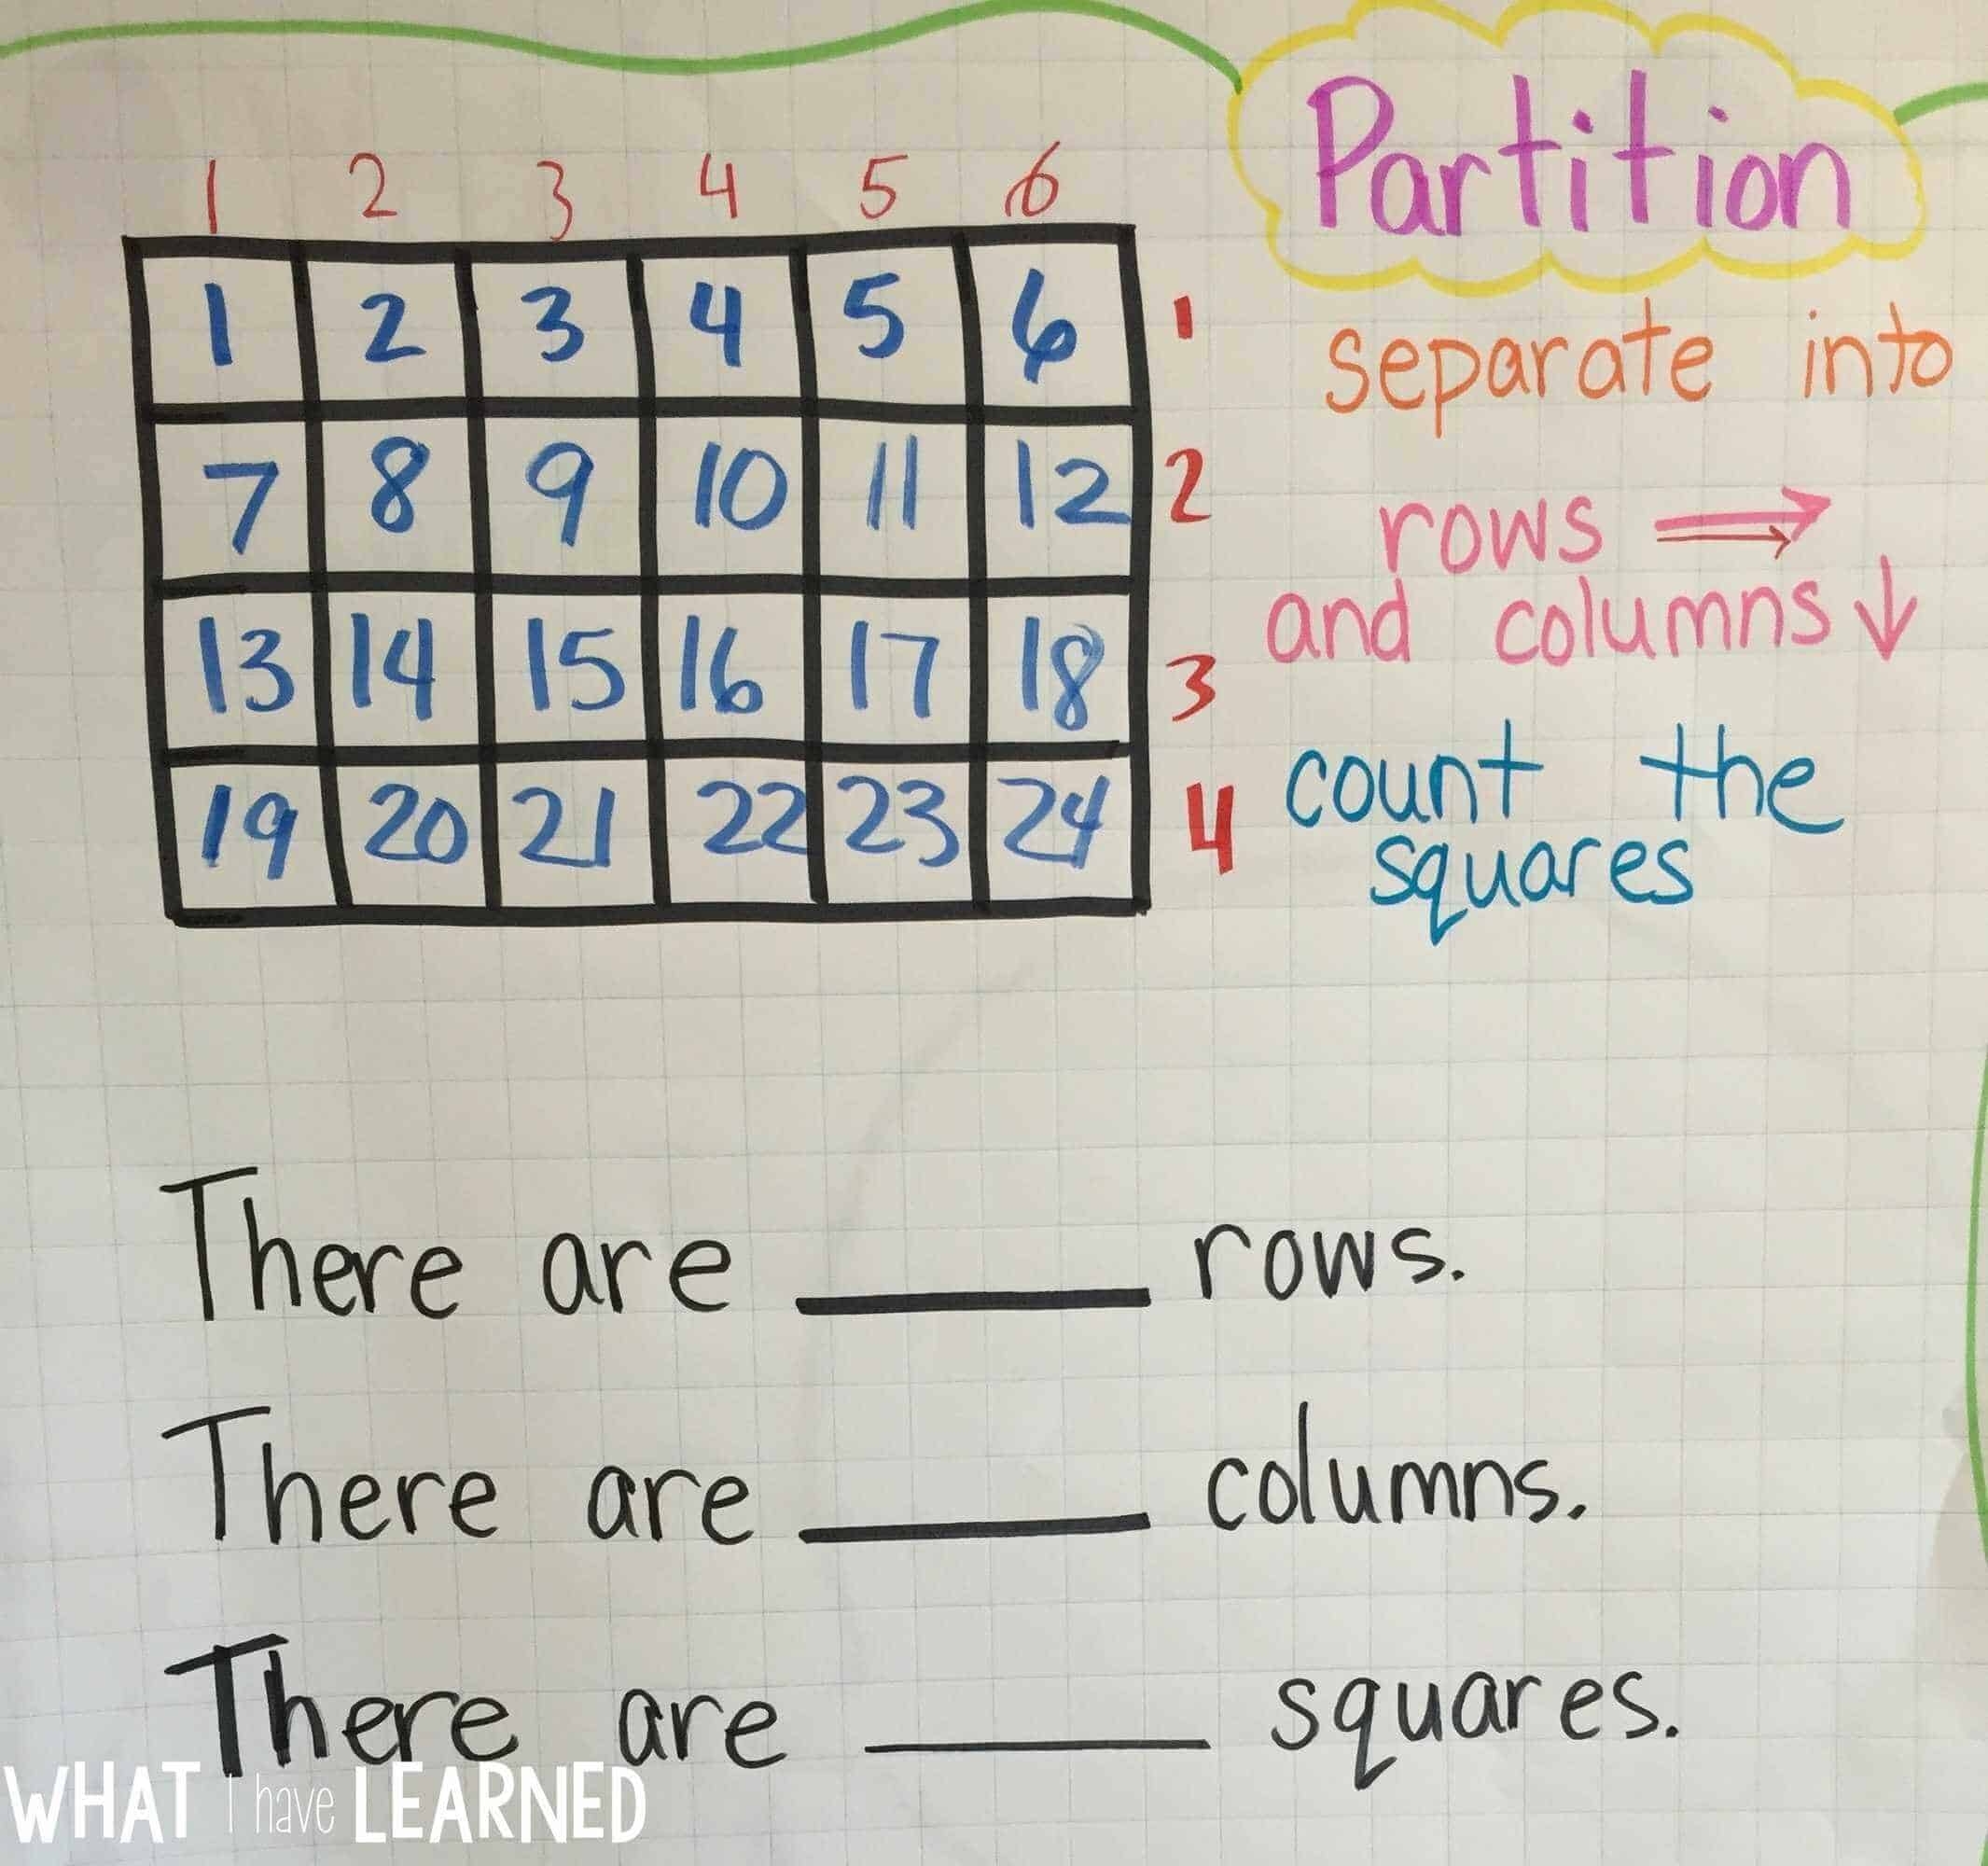 Partition
1 2 3 4 5 6
1 2 3 4 5 6 1
separate into
7 8 9 10 11 12 2
rows
and columns
13 14 15 16 17 18 3
count the
19 20 21 22 23 24 4
squares
There are ____ rows.
There are ____ columns.
There are ____ squares.
WHAT I have LEARNED